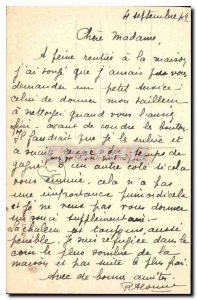 4 septembre 49
Chère Madame,
A peine rentrée à la maison
j'ai songé que j'aurais pu vous
demander un petit service -
celui de donner mon tailleur
à nettoyer quand vous l'aurez
fini - avant de coudre les boutons
il faudrait que je les enlève et
a
gagné un autre côté si cela
vous ennuie cela n'a pas
une importance primordiale
et je ne veux pas vous donner
un souci supplémentaire -
La chaleur est toujours aussi
pénible. Je suis réfugiée dans le
coin le plus sombre de la
maison et par suite le plus frais.
Avec de bonnes amitiés